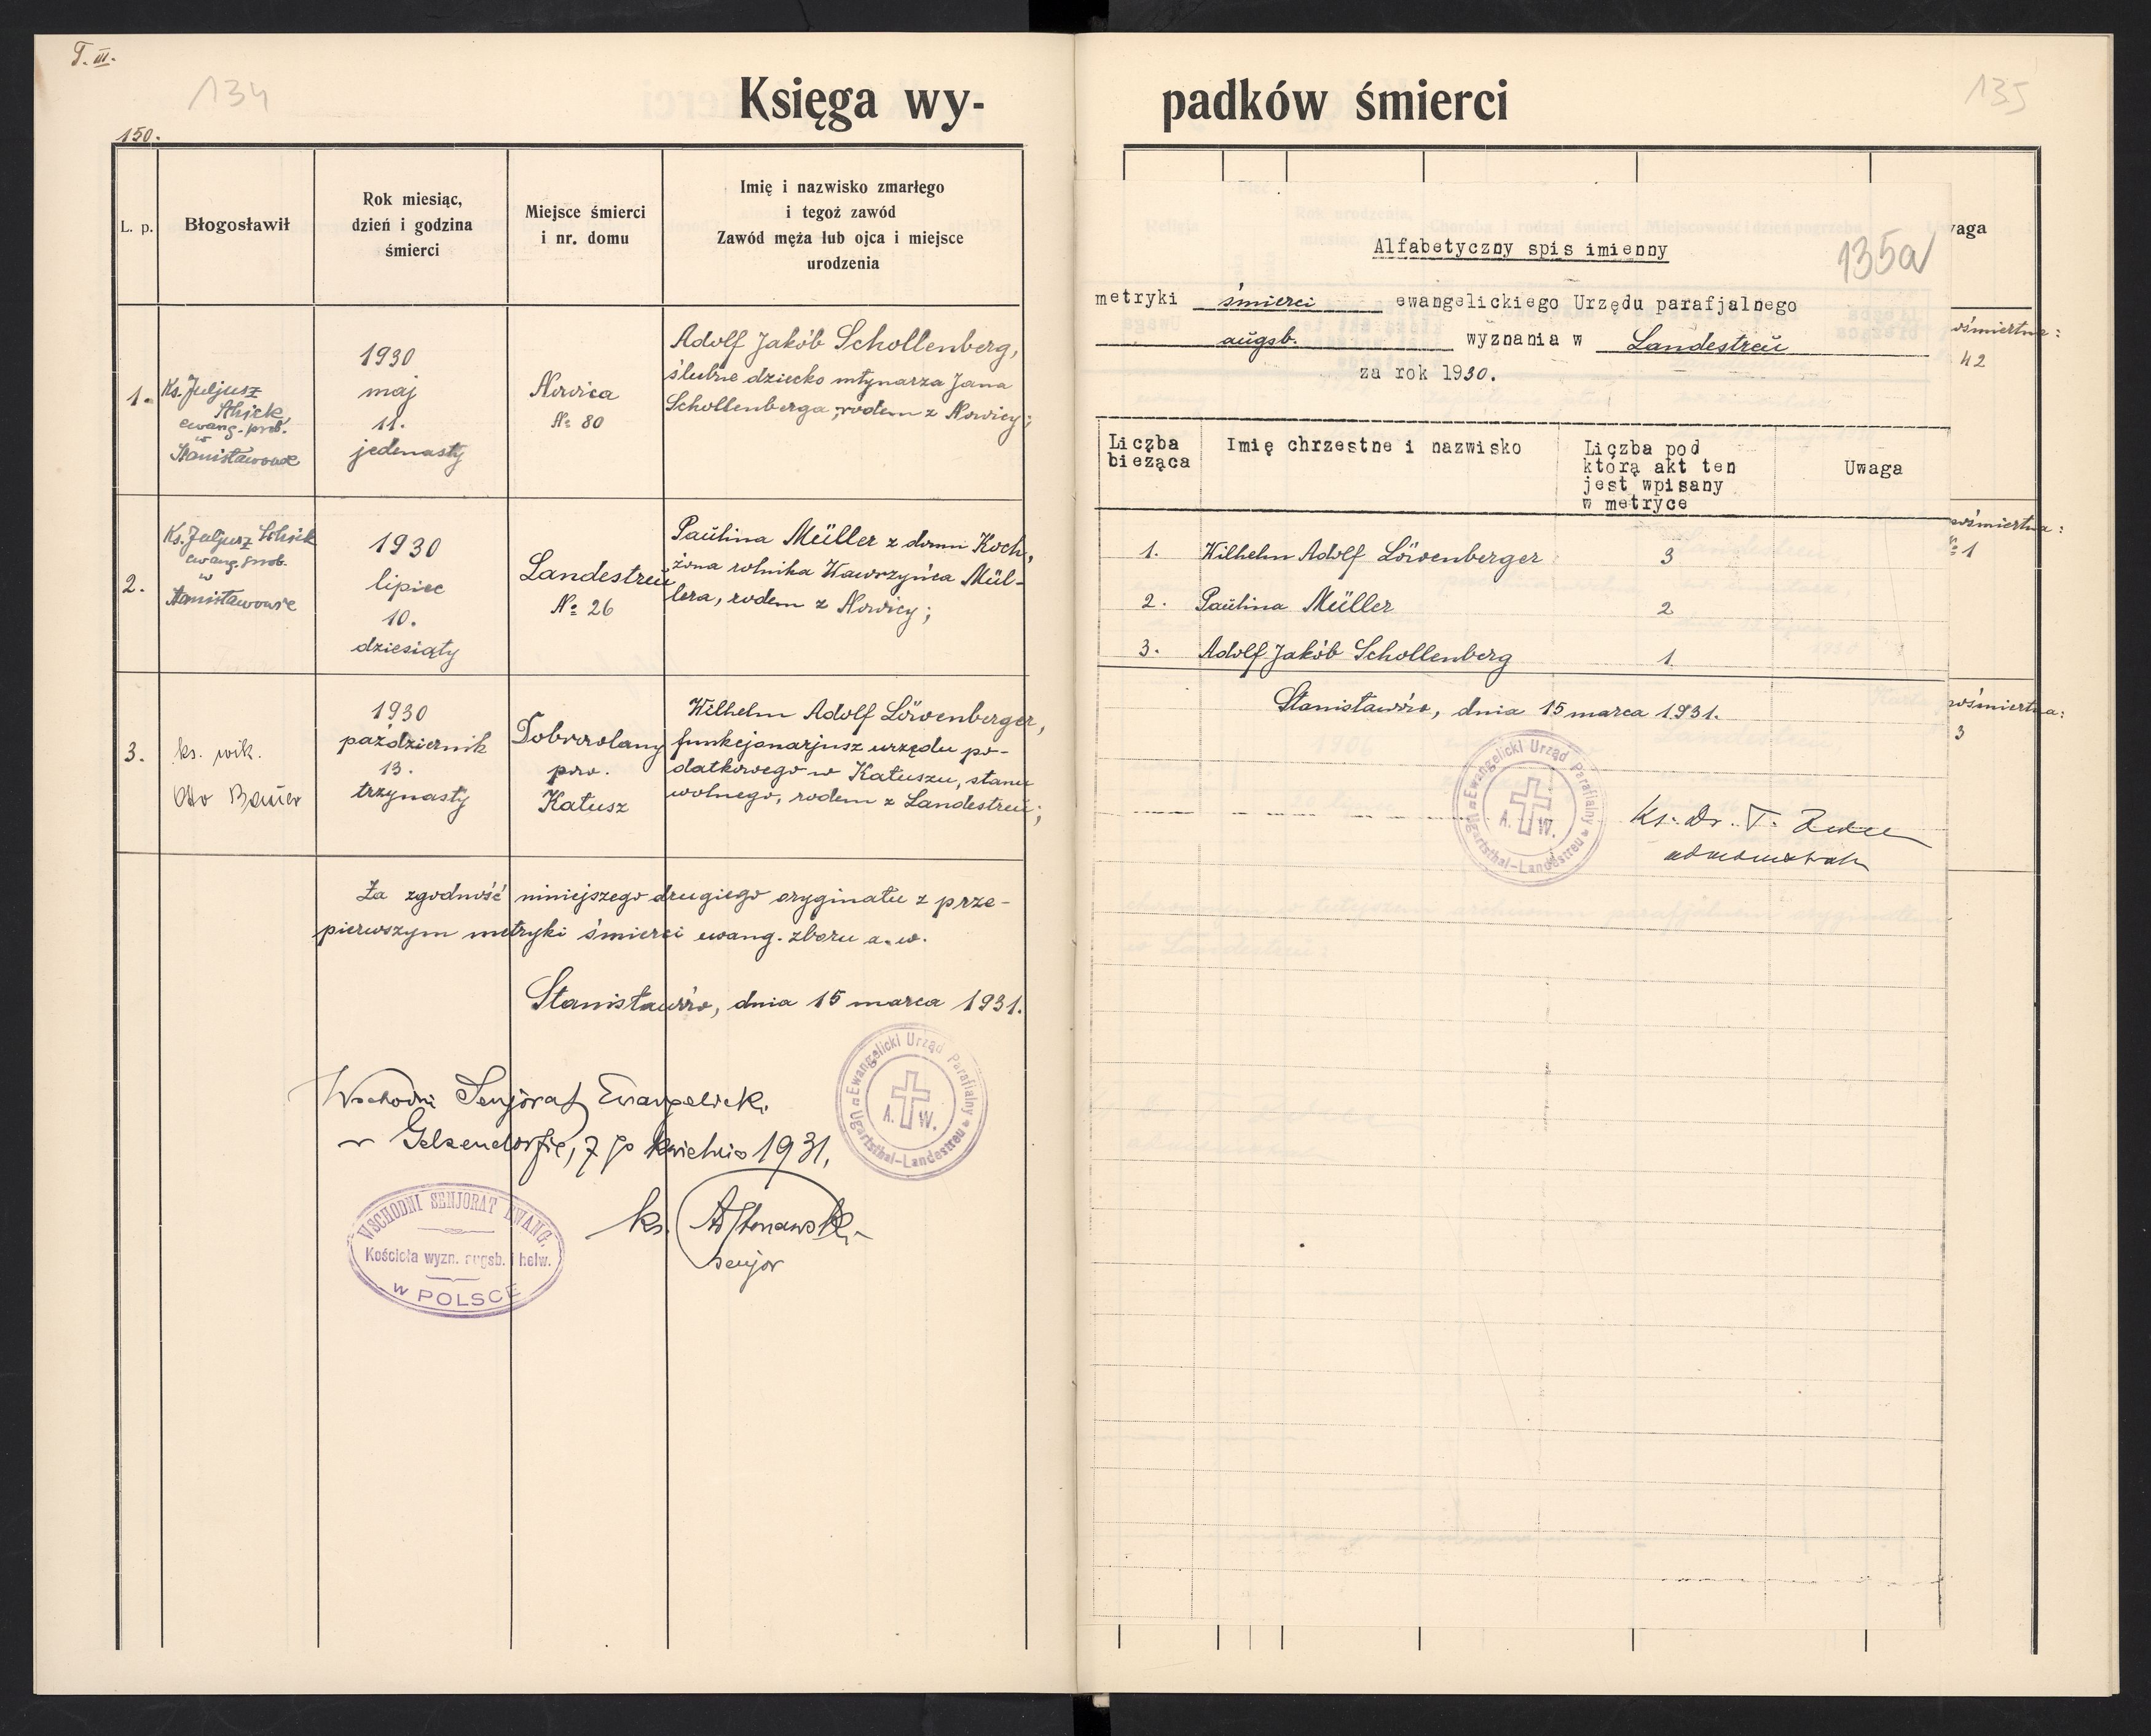 T. III.
134
150.
Księga wy-
L. p.
Błogosławił
Rok miesiąc,
dzień i godzina
śmierci
Miejsce śmierci
i nr. domu
Imię i nazwisko zmarłego
i tegoż zawód
Zawód męża lub ojca i miejsce
urodzenia
1.
Ks. Juljusz
ewang. prob.
w
Stanisławowie
1930
maj
11.
jedenasty
Nowica
№ 80
Adolf Jakób Schollenberg,
ślubne dziecko młynarza Jana
Schollenberga, rodem z Nowicy;
2.
Ks. Juljusz
ewang. prob.
w
Stanisławowie
1930
lipiec
10.
dziesiąty
Landestreü
№ 26
Paülina Müller z domu Koch,
żona rolnika Wawrzyńca Mül-
lera, rodem z Nowicy;
3.
ks. wik.
Otto Baüer
1930
październik
13.
trzynasty
Dobrowlany
pow.
Kałusz
Wilhelm Adolf Löwenberger,
funkcjonarjusz urzędu po-
datkowego w Kałuszu, stanu
wolnego, rodem z Landestreü;
Za zgodność niniejszego drugiego oryginału z prze-
pierwszym metryki śmierci ewang. zboru a. w.
Stanisławów, dnia 15 marca 1931.
Ewangelicki Urząd Parafialny
A. W.
Ugartsthal-Landestreu
Wschodni Senjorat Ewangelicki
w Gelsendorfie, 7 go kwietnia 1931.
WSCHODNI SENJORAT EWANG.
Kościoła wyzn. augsb. i helw.
w POLSCE
ks.
senjor
padków śmierci
135
135a
Alfabetyczny spis imienny
metryki śmierci ewangelickiego Urzędu parafjalnego
augsb. wyznania w Landestreü
za rok 1930.
Liczba
bieżąca
Imię chrzestne i nazwisko
Liczba pod
którą akt ten
jest wpisany
w metryce
Uwaga
1. Wilhelm Adolf Löwenberger 3
2. Paülina Müller 2
3. Adolf Jakób Schollenberg 1
Stanisławów, dnia 15 marca 1931.
Ewangelicki Urząd Parafialny
A. W.
Ugartsthal-Landestreu
Ks. Dr. T.
waga
ośmiertna:
42
ośmiertna:
№ 1
ośmiertna:
3